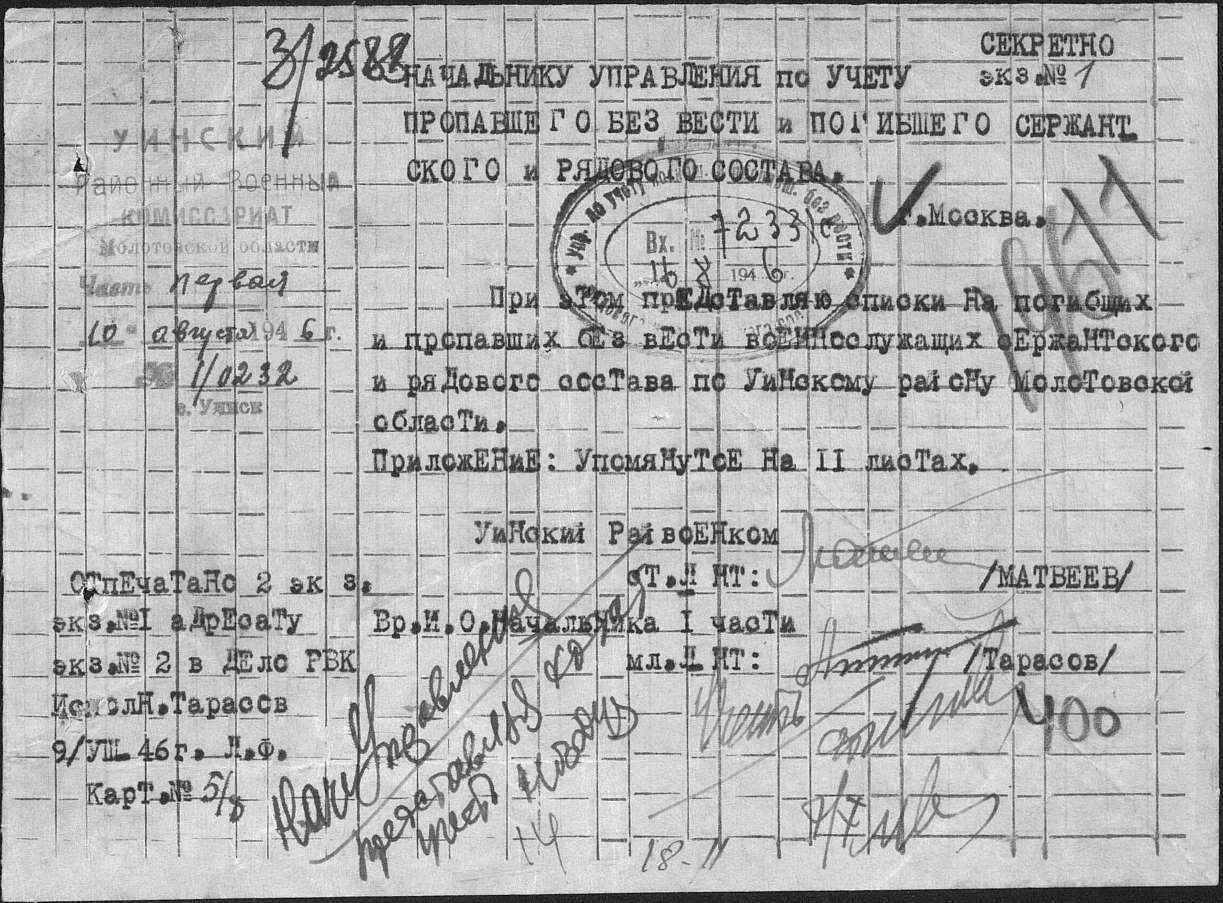 3/2588
СЕКРЕТНО
экз.№ 1
НАЧАЛЬНИКУ УПРАВЛЕНИЯ по УЧЕТУ
ПРОПАВШЕГО БЕЗ ВЕСТИ и ПОГИБШЕГО СЕРЖАНТ
СКОГО и РЯДОВОГО СОСТАВА.
г.Москва.
УИНСКИЙ
Районный Военный
КОМИССАРИАТ
Молотовской области
Часть первая
10 августа 1946 г.
№ 1/0232
с. Уинск
Упр. по учету без вести
Вх. № 7233
16 X 1946 г.
При этом прЕДсТавляю списки На погибщих
и пропавших бЕз вЕсТи воЕННослужащих сЕржаНТского
и ряДового сосТава по УиНскому райоНу МолоТовской
обласТи.
ПриложЕНиЕ: УпомяНуТоЕ На II лисТах.
УиНский РайвоЕНком
сТ.Л НТ: /МАТВЕЕВ/
Вр.И.О.НачальНика I часТи
мл.Л НТ: /Тарасов/
ОТпЕчаТаНо 2 эк з.
экз.№I аДрЕсаТу
экз.№ 2 в ДЕло РВК
ИсполН.Тарасов
9/УШ 46г. Л.Ф.
КарТ.№ 5/8
400
14
18-11